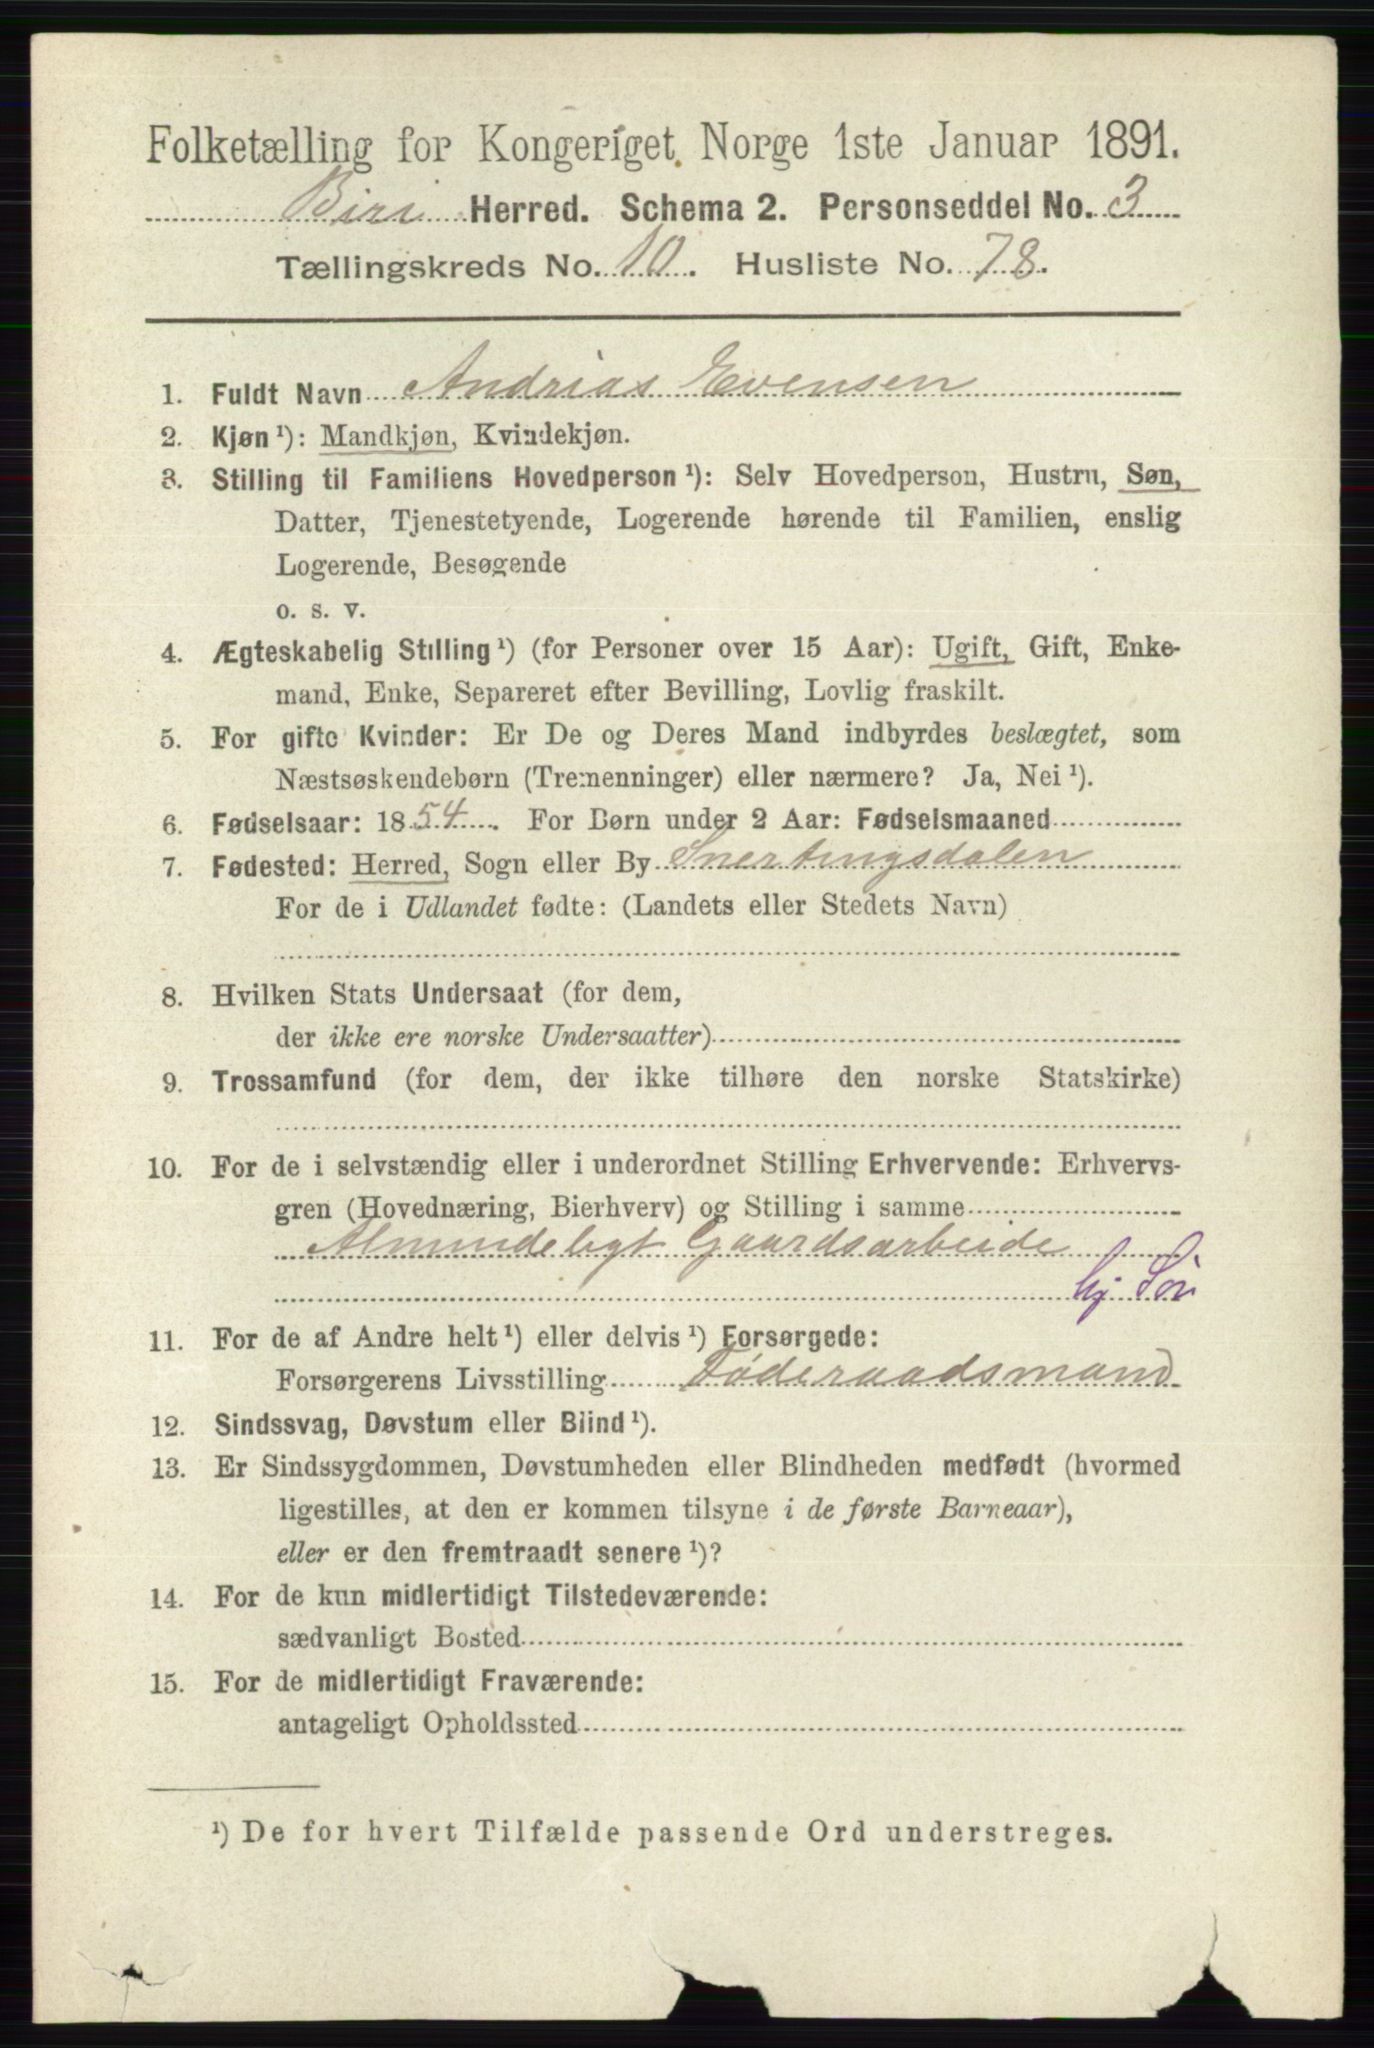 Folketælling for Kongeriget Norge 1ste Januar 1891.
Biri Herred. Schema 2. Personseddel No. 3
Tællingskreds No. 10. Husliste No. 78.
1. Fuldt Navn Andrias Evensen
2. Kjøn ¹): Mandkjøn, Kvindekjøn.
3. Stilling til Familiens Hovedperson ¹): Selv Hovedperson, Hustru, Søn,
Datter, Tjenestetyende, Logerende hørende til Familien, enslig
Logerende, Besøgende
o. s. v.
4. Ægteskabelig Stilling ¹) (for Personer over 15 Aar): Ugift, Gift, Enke-
mand, Enke, Separeret efter Bevilling, Lovlig fraskilt.
5. For gifte Kvinder: Er De og Deres Mand indbyrdes beslægtet, som
Næstsøskendebørn (Tremenninger) eller nærmere? Ja, Nei ¹).
6. Fødselsaar: 1854. For Børn under 2 Aar: Fødselsmaaned
7. Fødested: Herred, Sogn eller By Snertingsdalen
For de i Udlandet fødte: (Landets eller Stedets Navn)
8. Hvilken Stats Undersaat (for dem,
der ikke ere norske Undersaatter)
9. Trossamfund (for dem, der ikke tilhøre den norske Statskirke)
10. For de i selvstændig eller i underordnet Stilling Erhvervende: Erhvervs-
gren (Hovednæring, Bierhverv) og Stilling i samme
Almindeligt Gaardsarbeide
hj. Søn
11. For de af Andre helt ¹) eller delvis ¹) Forsørgede:
Forsørgerens Livsstilling Føderaadsmand
12. Sindssvag, Døvstum eller Blind ¹).
13. Er Sindssygdommen, Døvstumheden eller Blindheden medfødt (hvormed
ligestilles, at den er kommen tilsyne i de første Barneaar),
eller er den fremtraadt senere ¹)?
14. For de kun midlertidigt Tilstedeværende:
sædvanligt Bosted
15. For de midlertidigt Fraværende:
antageligt Opholdssted
¹) De for hvert Tilfælde passende Ord understreges.